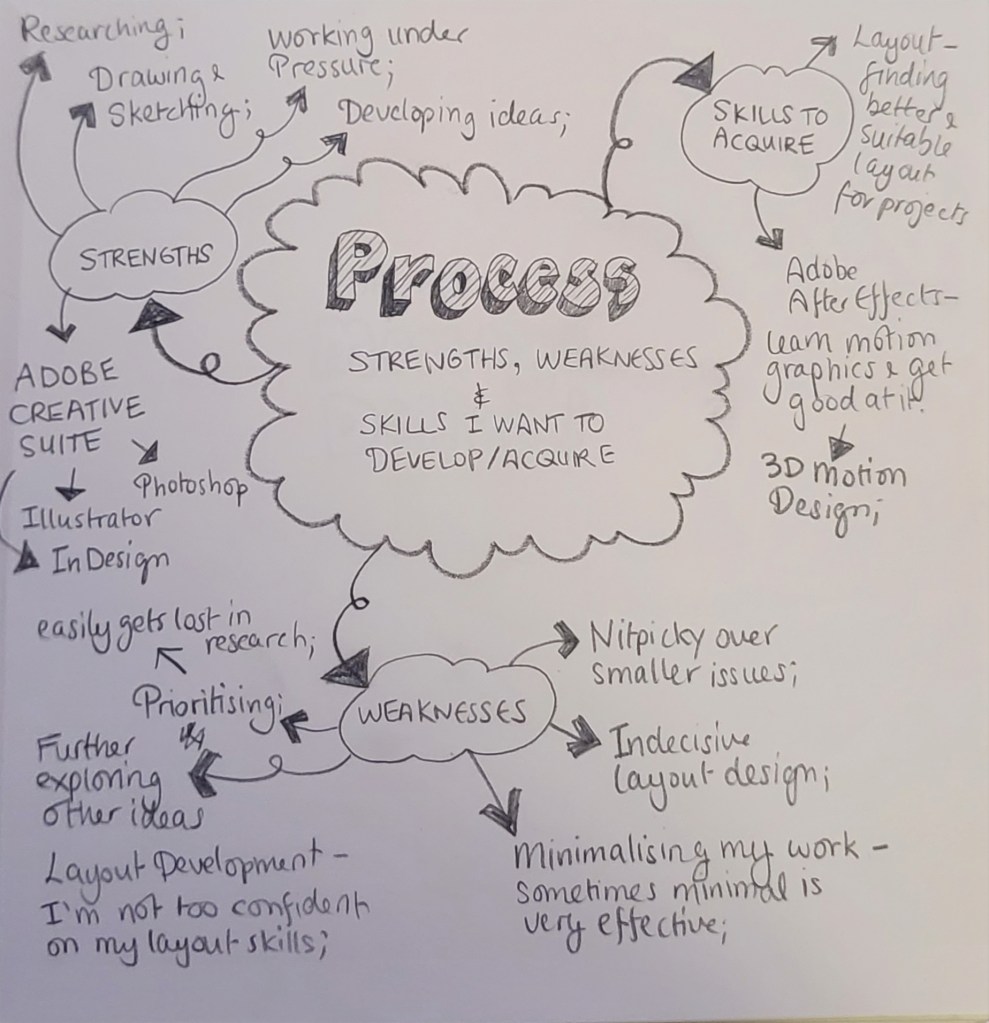 Process
STRENGTHS, WEAKNESSES
&
SKILLS I WANT TO
DEVELOP/ACQUIRE
STRENGTHS
Researching;
Drawing &
Sketching;
Working under
Pressure;
Developing ideas;
ADOBE
CREATIVE
SUITE
Photoshop
Illustrator
InDesign
SKILLS TO
ACQUIRE
Layout-
finding
better &
suitable
layout
for projects
Adobe
After Effects-
learn motion
graphics & get
good at it!
3D motion
Design;
WEAKNESSES
Nitpicky over
smaller issues;
Indecisive
layout design;
Minimalising my work -
sometimes minimal is
very effective;
Prioritising;
easily gets lost in
research;
Further
exploring
other ideas
Layout Development -
I'm not too confident
on my layout skills;